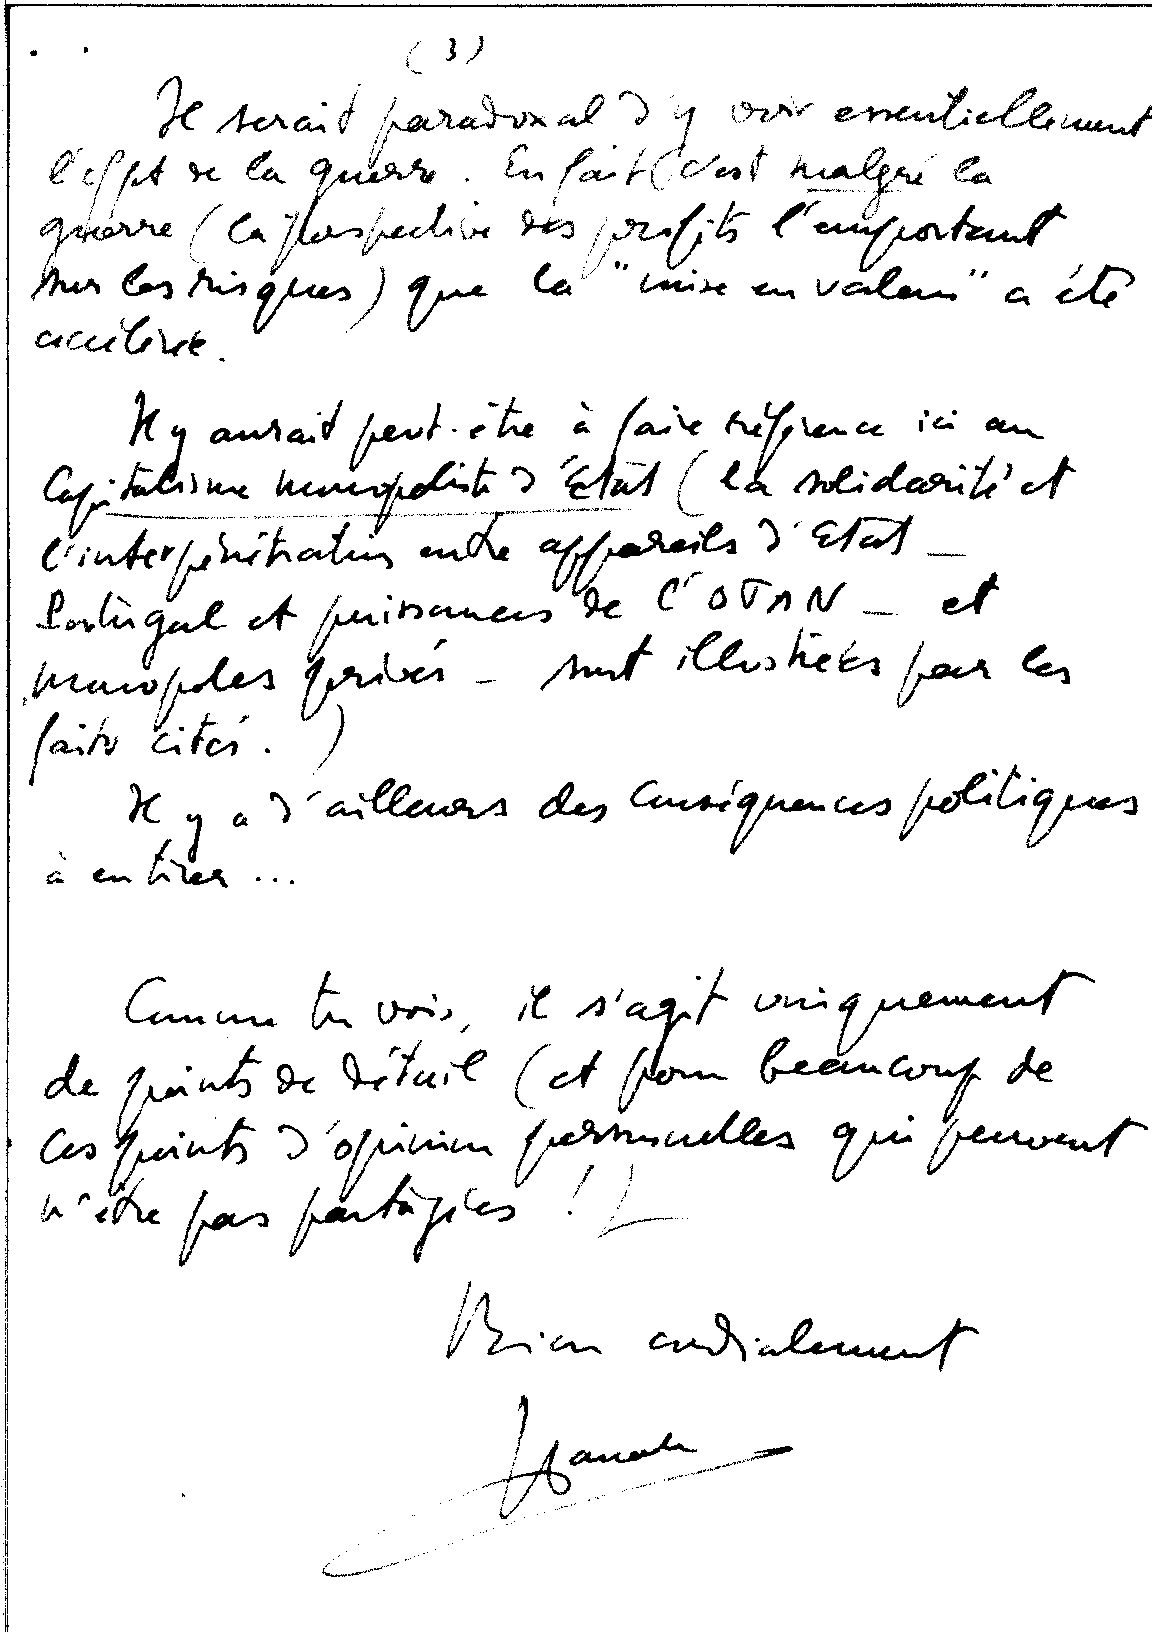 (3)
Il serait paradoxal d'y voir essentiellement
l'effet de la guerre. En fait c'est malgré la
guerre (la perspective des profits l'emportant
sur les risques) que la "mise en valeur" a été
accélérée.
Il y aurait peut-être à faire référence ici au
Capitalisme monopoliste d'État (la solidarité et
l'interpénétration entre appareils d'Etat —
Portugal et puissances de l'OTAN — et
monopoles privés — sont illustrées par les
faits cités.)
Il y a d'ailleurs des conséquences politiques
à en tirer ...
Comme tu vois, il s'agit uniquement
de points de détail (et pour beaucoup de
ces points d'opinion personnelles qui peuvent
n'être pas partagées !)
Bien cordialement